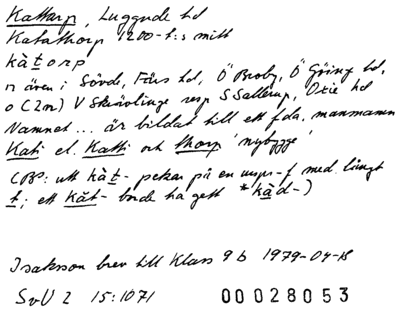 Kattarp, Luggude hd
Katathorp 1200-t:s mitt
kàtorp
n även i Sövde, Färs hd, Ö Broby, Ö Göinge hd,
o (2 n) V Skrävlinge resp S Sallerup, Oxie hd
Namnet ... är bildat till ett fda. mansnamn
Kati el. Katti och thorp 'nybygge'
(BP: utt kàt- pekar på en uspr-f med långt
t; ett kāt- borde ha gett *kàd-)
Isaksson brev till Klass 9 b 1979-04-18
SvU 2 15:1071 00028053